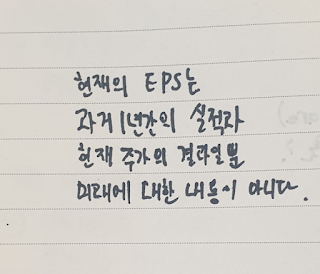 현재의 EPS는
과거 1년간의 실적과
현재 주가의 결과일 뿐
미래에 대한 내용이 아니다.